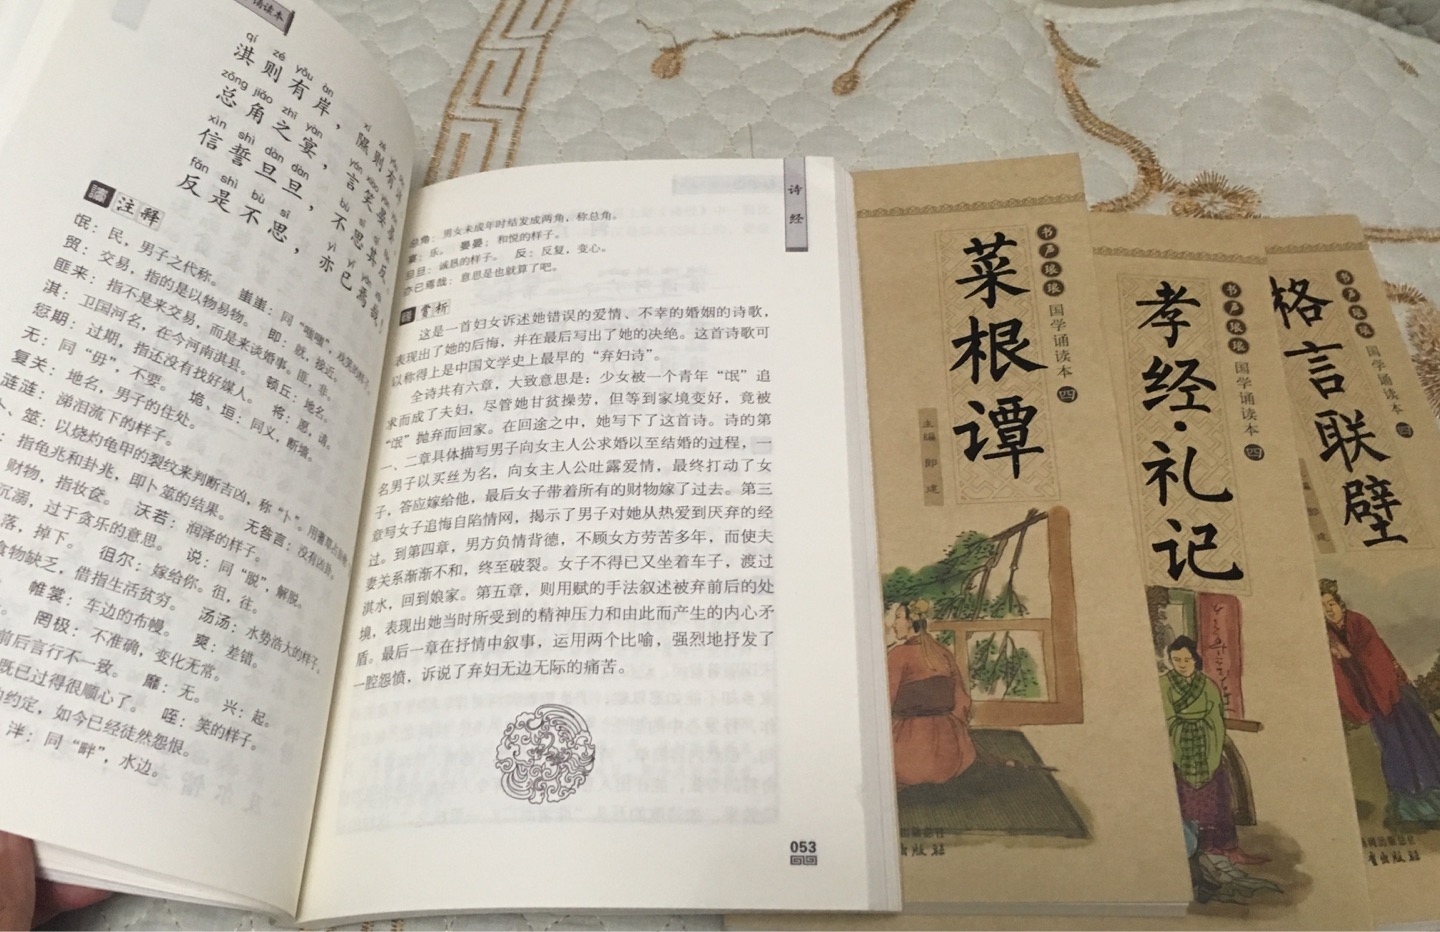 诵读本
qí zé yǒu àn
淇则有岸，隰则有
zǒng jiǎo zhī yàn
总角之宴，言笑晏晏，
xìn shì dàn dàn bù
信誓旦旦，不思其反。
fǎn shì bù sī yì
反是不思，亦已焉哉！
注释
氓：民，男子之代称。 蚩蚩：同“嗤嗤”，
贸：交易，指的是以物易物。 即：就，接近。
匪来：指不是来交易，而是来谈婚事。匪，非。
淇：卫国河名，在今河南淇县。 顿丘：地名。
愆期：过期，指还没有找好媒人。 将：愿，请。
无：同“毋”，不要。 垝、垣：同义，断墙。
复关：地名，男子的住处。
涟涟：涕泪流下的样子。
卜、筮：以烧灼龟甲的裂纹来判断吉凶，称“卜”。用蓍草
：指龟兆和卦兆，即卜筮的结果。 无咎言：没有凶卦。
财物，指妆奁。 沃若：润泽的样子。
沉溺，过于贪乐的意思。 说：同“脱”，解脱。
落，掉下。 徂尔：嫁给你。徂，往。
食物缺乏，借指生活贫穷。 汤汤：水势浩大的样子。
帷裳：车边的布幔。 爽：差错。
罔极：不准确，变化无常。
前后言行不一致。 靡：无。 兴：起。
既已过得很顺心了。 咥：笑的样子。
约定，如今已经徒然怨恨。
泮：同“畔”，水边。
诗经
总角：男女未成年时结发成两角，称总角。
宴：乐。 晏晏：和悦的样子。
旦旦：诚恳的样子。 反：反复，变心。
亦已焉哉：意思是也就算了吧。
赏析
这是一首妇女诉述她错误的爱情、不幸的婚姻的诗歌，
表现出了她的后悔，并在最后写出了她的决绝。这首诗歌可
以称得上是中国文学史上最早的“弃妇诗”。
全诗共有六章，大致意思是：少女被一个青年“氓”追
求而成了夫妇，尽管她甘贫操劳，但等到家境变好，竟被
“氓”抛弃而回家。在回途之中，她写下了这首诗。诗的第
一、二章具体描写男子向女主人公求婚以至结婚的过程，一
名男子以买丝为名，向女主人公吐露爱情，最终打动了女
子，答应嫁给他，最后女子带着所有的财物嫁了过去。第三
章写女子追悔自陷情网，揭示了男子对她从热爱到厌弃的经
过。到第四章，男方负情背德，不顾女方劳苦多年，而使夫
妻关系渐渐不和，终至破裂。女子不得已又坐着车子，渡过
淇水，回到娘家。第五章，则用赋的手法叙述被弃前后的处
境，表现出她当时所受到的精神压力和由此而产生的内心矛
盾。最后一章在抒情中叙事，运用两个比喻，强烈地抒发了
一腔怨愤，诉说了弃妇无边无际的痛苦。
053
菜根谭
书声琅琅
国学诵读本 四
主编 郎建
孝经·礼记
书声琅琅
国学诵读本 四
格言联璧
书声琅琅
国学诵读本 四